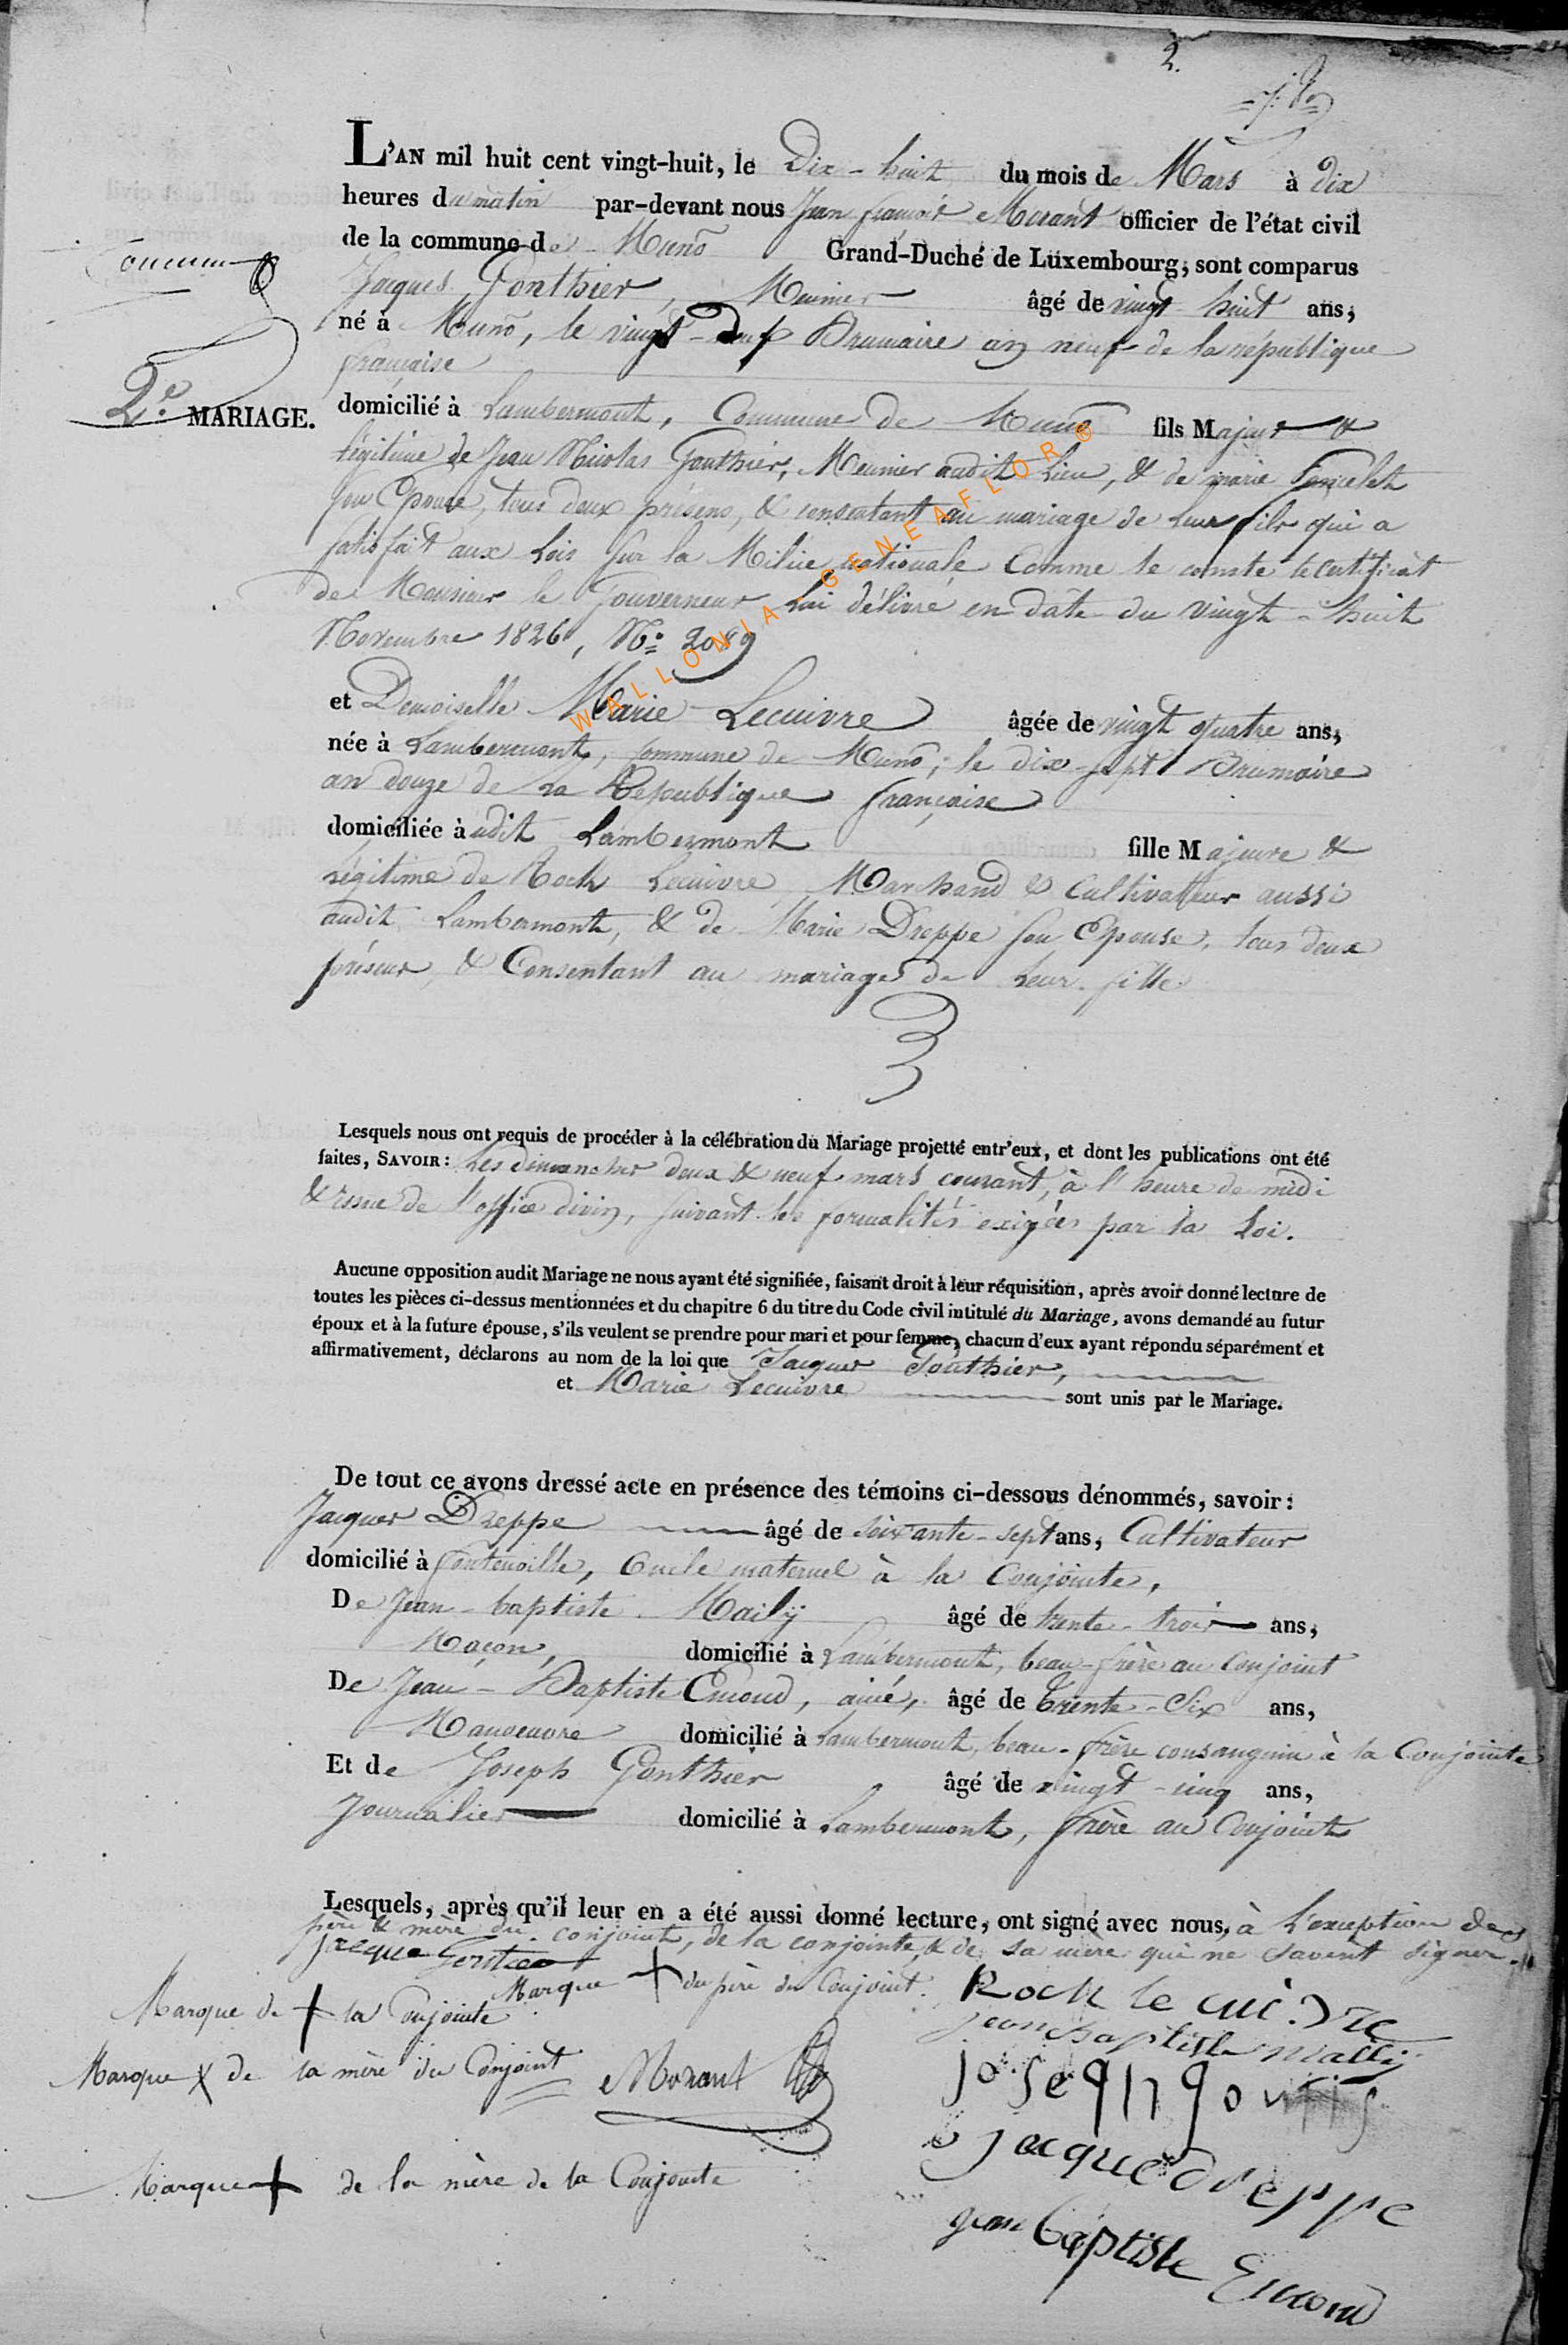 2.
L'AN mil huit cent vingt-huit, le Dix-huit du mois de Mars à dix
heures du matin par-devant nous Jean françois Morant officier de l'état civil
de la commune de Muno Grand-Duché de Luxembourg, sont comparus
Jacques Gonthier, Meunier âgé de vingt-huit ans,
né à Muno, le vingt-neuf Brumaire an neuf de la république
française
2.e MARIAGE.
domicilié à Lambermont, Commune de Muno fils Majeur &
légitime de Jean Nicolas Gonthier, Meunier audit Lieu, & de marie Poncelet
son Epouse, tous deux présens, & consentant au mariage de Leur fils qui a
satisfait aux Lois sur la Milice nationale Comme le conste le certificat
de Monsieur le Gouverneur Lui délivré en date du vingt-huit
Novembre 1826, N.o 2089
WALLONIA GENEAFLOR ®
et Demoiselle Marie Lecuivre âgée de vingt quatre ans,
née à Lambermont, commune de Muno, le dix-sept Brumaire
an douze de La République française
domiciliée audit Lambermont fille Majeure &
légitime de Roch Lecuivre, Marchand & Cultivateur aussi
audit Lambermont, & de Marie Dreppe son Epouse, tous deux
présens, & Consentant au mariage de Leur fille
Lesquels nous ont requis de procéder à la célébration du Mariage projetté entr'eux, et dont les publications ont été
faites, SAVOIR : Les dimanches deux & neuf mars courant, à l'heure de midi
& issue de l'office divin, suivant les formalités exigées par la Loi.
Aucune opposition audit Mariage ne nous ayant été signifiée, faisant droit à leur réquisition, après avoir donné lecture de
toutes les pièces ci-dessus mentionnées et du chapitre 6 du titre du Code civil intitulé du Mariage, avons demandé au futur
époux et à la future épouse, s'ils veulent se prendre pour mari et pour femme, chacun d'eux ayant répondu séparément et
affirmativement, déclarons au nom de la loi que Jacques Gonthier,
et Marie Lecuivre sont unis par le Mariage.
De tout ce avons dressé acte en présence des témoins ci-dessous dénommés, savoir :
Jacques Dreppe âgé de soixante-sept ans, Cultivateur
domicilié à fontenoille, Oncle maternel à la Conjointe,
De Jean-baptiste Maily âgé de trente-trois ans,
Maçon, domicilié à Lambermont, beau-frère au Conjoint
De Jean-Baptiste Emond, ainé, âgé de Trente-Six ans,
Manoeuvre domicilié à Lambermont, beau-frère consanguin à la Conjointe
Et de Joseph Gonthier âgé de vingt-cinq ans,
Journalier domicilié à Lambermont, frère au Conjoint
Lesquels, après qu'il leur en a été aussi donné lecture, ont signé avec nous, à L'exception des
père & mère du conjoint, de la conjointe, & de sa mère qui ne savent signer.
Marque + du père du Conjoint. Rock le cuivre
Marque de + la Conjointe
Marque X de la mère du Conjoint Morant
jacque dreppe
Marque + de la mère de la Conjointe
jean baptiste Emond